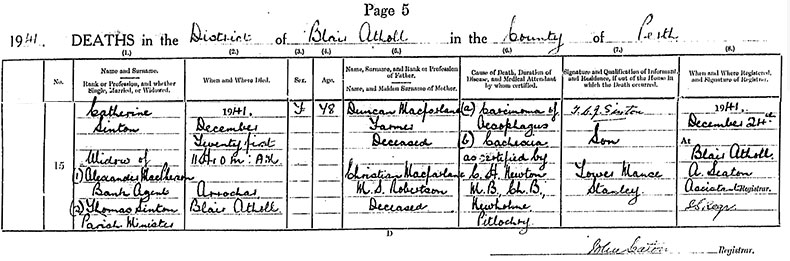 Page 5
1941. DEATHS in the District of Blair Atholl in the County of Perth
(1.) (2.) (3.) (4.) (5.) (6.) (7.) (8.)
No.
Name and Surname.
Rank or Profession, and whether
Single, Married, or Widowed.
When and Where Died.
Sex.
Age.
Name, Surname, and Rank or Profession
of Father.
Name, and Maiden Surname of Mother.
Cause of Death, Duration of
Disease, and Medical Attendant
by whom certified.
Signature and Qualification of Informant,
and Residence, if out of the House in
which the Death occurred.
When and Where Registered,
and Signature of Registrar.
15
Catherine
Sinton
Widow of
(1) Alexander MacPherson
Bank Agent
(2) Thomas Sinton
Parish Minister
1941.
December
Twenty first
11 H 0 M. A.M.
Arrochar
Blair Atholl
F
78
Duncan Macfarlane
Farmer
Deceased
Christian Macfarlane
M.S. Robertson
Deceased
(a) Carcinoma of
Oesophagus
(b) Cachexia
as certified by
C. H. Newton
M.B. Ch.B,
Newholme
Pitlochry
Sinton
Son
Lower Manse
Stanley
1941
December 24th
At
Blair Atholl.
A. Seaton
Assistant Registrar.
D
Registrar.